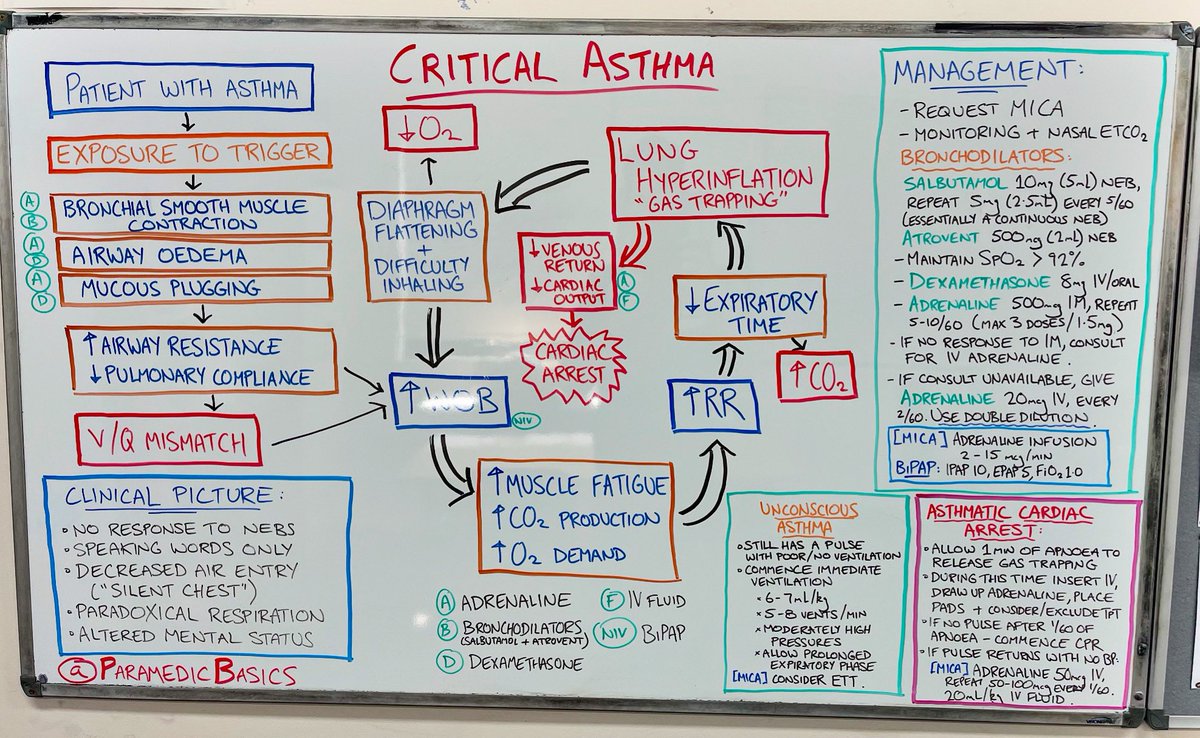 CRITICAL ASTHMA
PATIENT WITH ASTHMA
EXPOSURE TO TRIGGER
A
B
BRONCHIAL SMOOTH MUSCLE
CONTRACTION
A
B
AIRWAY OEDEMA
A
D
MUCOUS PLUGGING
↑ AIRWAY RESISTANCE
↓ PULMONARY COMPLIANCE
V/Q MISMATCH
CLINICAL PICTURE:
• NO RESPONSE TO NEBS
• SPEAKING WORDS ONLY
• DECREASED AIR ENTRY
("SILENT CHEST")
• PARADOXICAL RESPIRATION
• ALTERED MENTAL STATUS
@PARAMEDIC BASICS
↓ O₂
DIAPHRAGM
FLATTENING
+
DIFFICULTY
INHALING
↑ WOB
NIV
↑ MUSCLE FATIGUE
↑ CO₂ PRODUCTION
↑ O₂ DEMAND
↑ RR
↓ EXPIRATORY
TIME
↑ CO₂
LUNG
HYPERINFLATION
"GAS TRAPPING"
↓ VENOUS
RETURN
↓ CARDIAC
OUTPUT
A
F
CARDIAC
ARREST
A ADRENALINE
B BRONCHODILATORS
(SALBUTAMOL + ATROVENT)
D DEXAMETHASONE
F IV FLUID
NIV BiPAP
MANAGEMENT:
- REQUEST MICA
- MONITORING + NASAL ETCO₂
BRONCHODILATORS:
SALBUTAMOL 10mg (5ml) NEB,
REPEAT 5mg (2.5ml) EVERY 5/60
(ESSENTIALLY A CONTINUOUS NEB)
ATROVENT 500mg (2ml) NEB
- MAINTAIN SPO₂ > 92%
- DEXAMETHASONE 8mg IV/ORAL
- ADRENALINE 500mg IM, REPEAT
5-10/60 (MAX 3 DOSES/1.5mg)
- IF NO RESPONSE TO IM, CONSULT
FOR IV ADRENALINE.
- IF CONSULT UNAVAILABLE, GIVE
ADRENALINE 20mg IV, EVERY
2/60. USE DOUBLE DILUTION.
[MICA] ADRENALINE INFUSION
2-15 mcg/min
BiPAP: IPAP 10, EPAP 5, FiO₂ 1.0
UNCONSCIOUS
ASTHMA
• STILL HAS A PULSE
WITH POOR/NO VENTILATION
• COMMENCE IMMEDIATE
VENTILATION
* 6-7ml/kg
* 5-8 VENTS/MIN
* MODERATELY HIGH
PRESSURES
* ALLOW PROLONGED
EXPIRATORY PHASE
[MICA] CONSIDER ETT.
ASTHMATIC CARDIAC
ARREST:
• ALLOW 1 MIN OF APNOEA TO
RELEASE GAS TRAPPING
• DURING THIS TIME INSERT IV,
DRAW UP ADRENALINE, PLACE
PADS + CONSIDER/EXCLUDE TPT
• IF NO PULSE AFTER 1/60 OF
APNOEA - COMMENCE CPR
• IF PULSE RETURNS WITH NO BP:
[MICA] ADRENALINE 50mg IV,
REPEAT 50-100mcg EVERY 1/60.
20ml/kg IV FLUID.